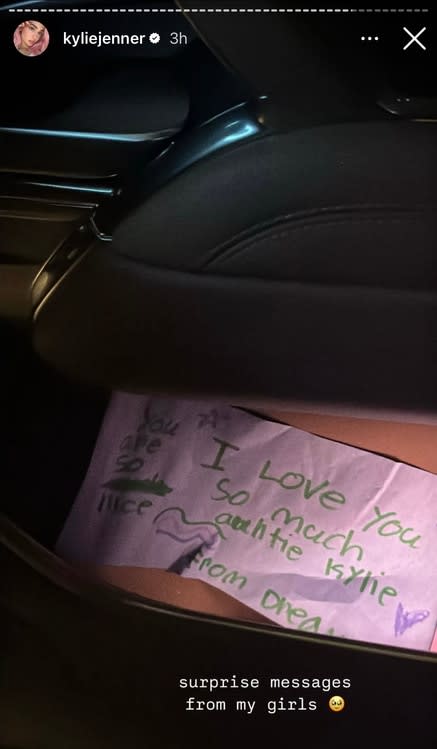 kyliejenner 3h
You
are
so
nice
I LOVE You
so much
auhtie kylie
from Drea
surprise messages
from my girls 🥹